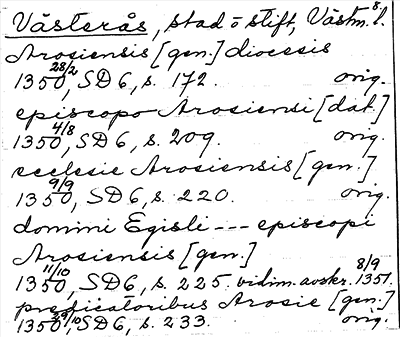 Västerås, stad o stift, Västm. s. l.
Arosiensis [gen.] diocesis
1350 28/2, SD 6, s. 172. orig.
episcopo Arosiensi [dat.]
1350 4/8, SD 6, s. 209. orig.
ecclesie Arosiensis [gen.]
1350 9/9, SD 6, s. 220. orig.
domini Egisli --- episcopi
Arosiensis [gen.]
1350 11/10, SD 6, s. 225. vidim. avskr. 8/9 1351.
predicatoribus Arosie [gen.]
1350 29/10, SD 6, s. 233. orig.